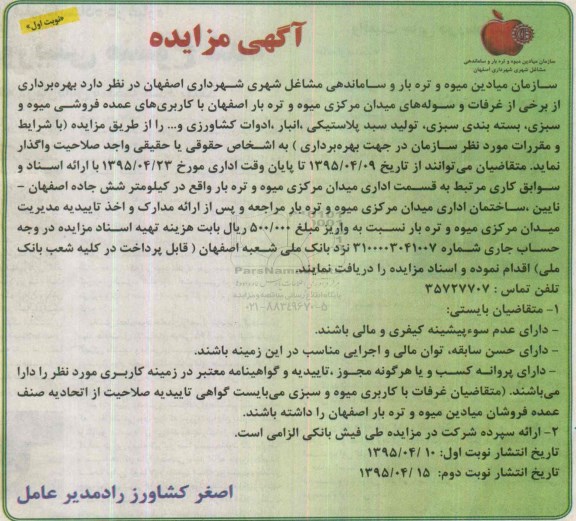 «نوبت اول»
آگهی مزایده
سازمان میادین میوه و تره بار و ساماندهی
مشاغل شهری شهرداری اصفهان
سازمان میادین میوه و تره بار و ساماندهی مشاغل شهری شهرداری اصفهان در نظر دارد بهره‌برداری
از برخی از غرفات و سوله‌های میدان مرکزی میوه و تره بار اصفهان با کاربری‌های عمده فروشی میوه و
سبزی، بسته بندی سبزی، تولید سبد پلاستیکی ،انبار ،ادوات کشاورزی و... را از طریق مزایده (با شرایط
و مقررات مورد نظر سازمان در جهت بهره‌برداری ) به اشخاص حقوقی یا حقیقی واجد صلاحیت واگذار
نماید. متقاضیان می‌توانند از تاریخ ۱۳۹۵/۰۴/۰۹ تا پایان وقت اداری مورخ ۱۳۹۵/۰۴/۲۳ با ارائه اسناد و
سوابق کاری مرتبط به قسمت اداری میدان مرکزی میوه و تره بار واقع در کیلومتر شش جاده اصفهان -
نایین ،ساختمان اداری میدان مرکزی میوه و تره بار مراجعه و پس از ارائه مدارک و اخذ تاییدیه مدیریت
میدان مرکزی میوه و تره بار نسبت به واریز مبلغ ۵۰۰/۰۰۰ ریال بابت هزینه تهیه اسناد مزایده در وجه
حساب جاری شماره ۳۱۰۰۰۰۳۰۴۱۰۰۷ نزد بانک ملی شعبه اصفهان ( قابل پرداخت در کلیه شعب بانک
ملی) اقدام نموده و اسناد مزایده را دریافت نمایند.
تلفن تماس : ۳۵۷۲۷۷۰۷
۱- متقاضیان بایستی:
- دارای عدم سوءپیشینه کیفری و مالی باشند.
- دارای حسن سابقه، توان مالی و اجرایی مناسب در این زمینه باشند.
- دارای پروانه کسب و یا هرگونه مجوز ،تاییدیه و گواهینامه معتبر در زمینه کاربری مورد نظر را دارا
می‌باشند. (متقاضیان غرفات با کاربری میوه و سبزی می‌بایست گواهی تاییدیه صلاحیت از اتحادیه صنف
عمده فروشان میادین میوه و تره بار اصفهان را داشته باشند.
۲- ارائه سپرده شرکت در مزایده طی فیش بانکی الزامی است.
تاریخ انتشار نوبت اول: ۱۰ /۱۳۹۵/۰۴
تاریخ انتشار نوبت دوم: ۱۵ /۱۳۹۵/۰۴
اصغر کشاورز رادمدیر عامل